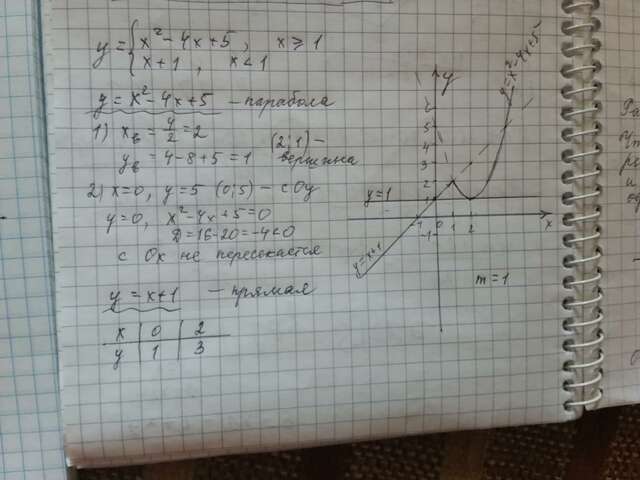 y = { x² - 4x + 5 , x ≥ 1
x + 1 , x < 1
y = x² - 4x + 5 - парабола
1) xв = 4/2 = 2
yв = 4 - 8 + 5 = 1 (2; 1) - вершина
2) x = 0, y = 5 (0; 5) - с Oy
y = 0, x² - 4x + 5 = 0
D = 16 - 20 = -4 < 0
с Ox не пересекается
y = x + 1 - прямая
x | 0 | 2
y | 1 | 3
y
y = x² - 4x + 5
5
4
3
2
1
y = 1
-1 0 1 2 x
-1
y = x + 1
m = 1